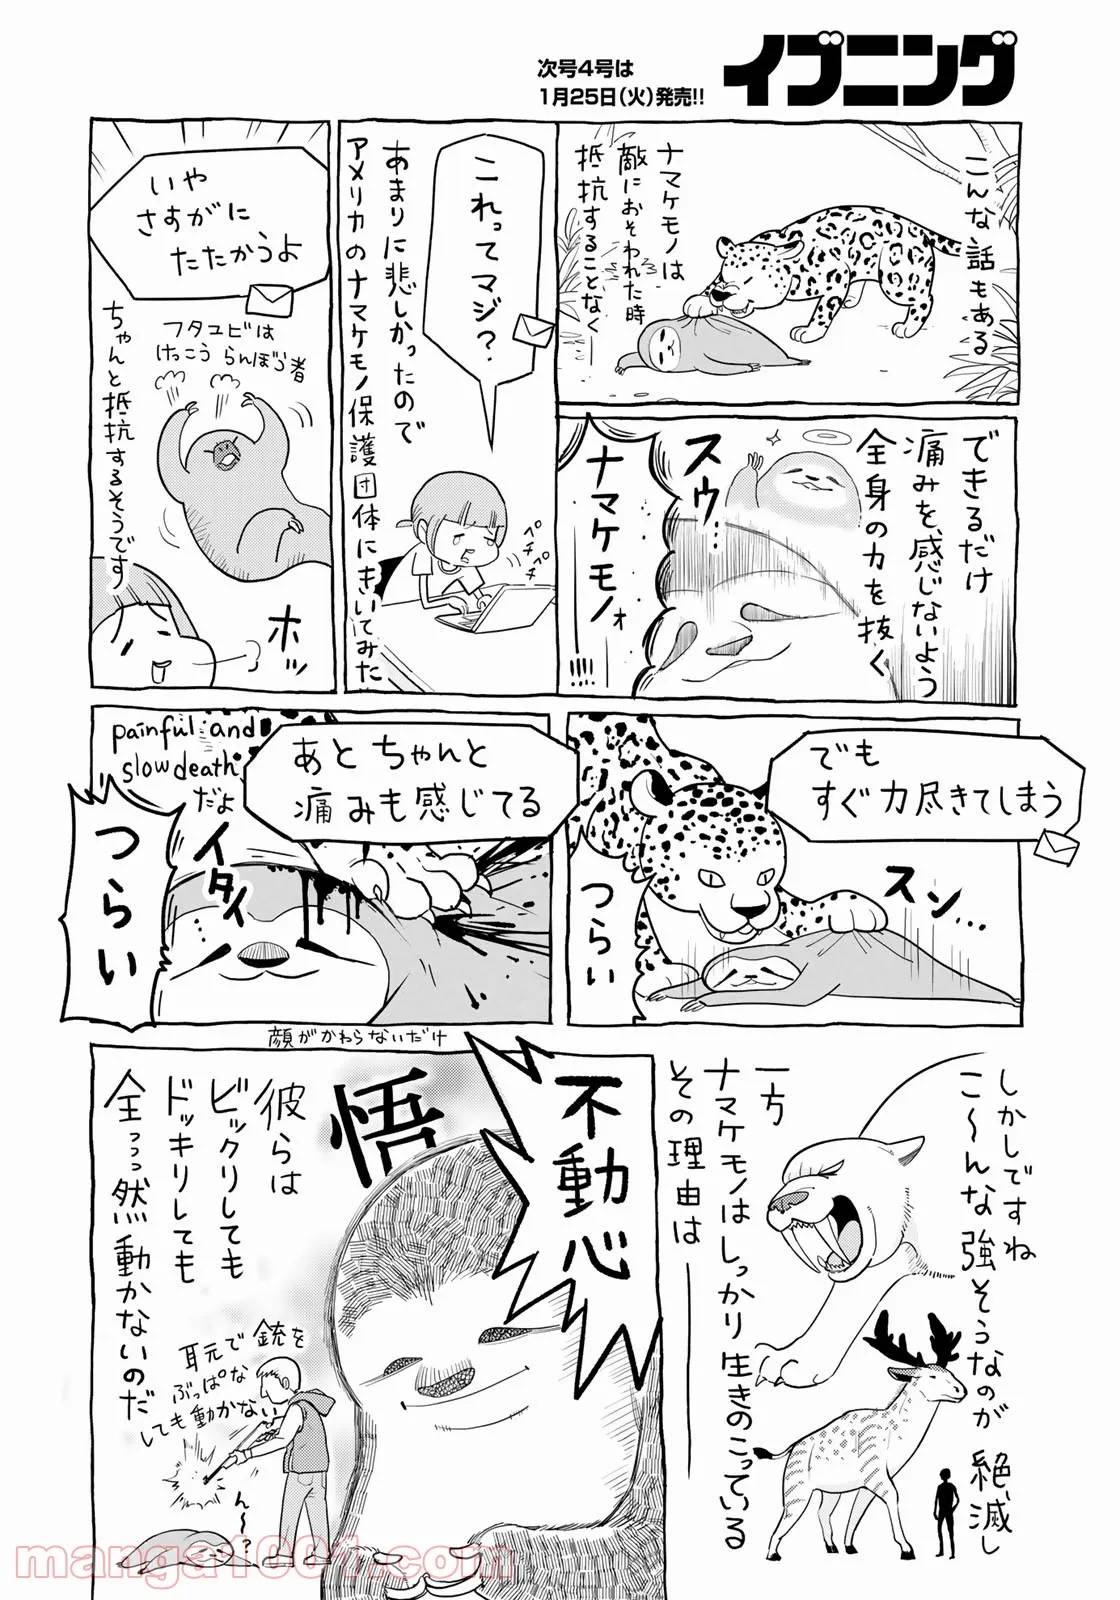 イブニング
次号4号は
1月25日(火)発売!!
こんな話もある
ナマケモノは
敵におそわれた時
抵抗することなく―
できるだけ
痛みを感じないよう
全身の力を抜く
スウ…
ナマケモノォ
!!!!
これってマジ?
あまりに悲しかったので
アメリカのナマケモノ保護団体にきいてみた
ペチペチ
いや
さすがに
たたかうよ
フタユビは
けっこう らんぼう者
ちゃんと抵抗するそうです
ホッ
でも
すぐ力尽きてしまう
スン…
つらい
あと ちゃんと
痛みも感じてる
painful and
slow death
だよ
イタイ…
つらい
顔がかわらないだけ
しかしですね
こ〜んな強そうなのが絶滅し
一方
ナマケモノはしっかり生きのこっている
その理由は――
不動心
悟
彼らは
ビックリしても
ドッキリしても
全っっっ然動かないのだ
耳元で銃を
ぶっぱな
しても動かない
ん〜?
manga1001.com